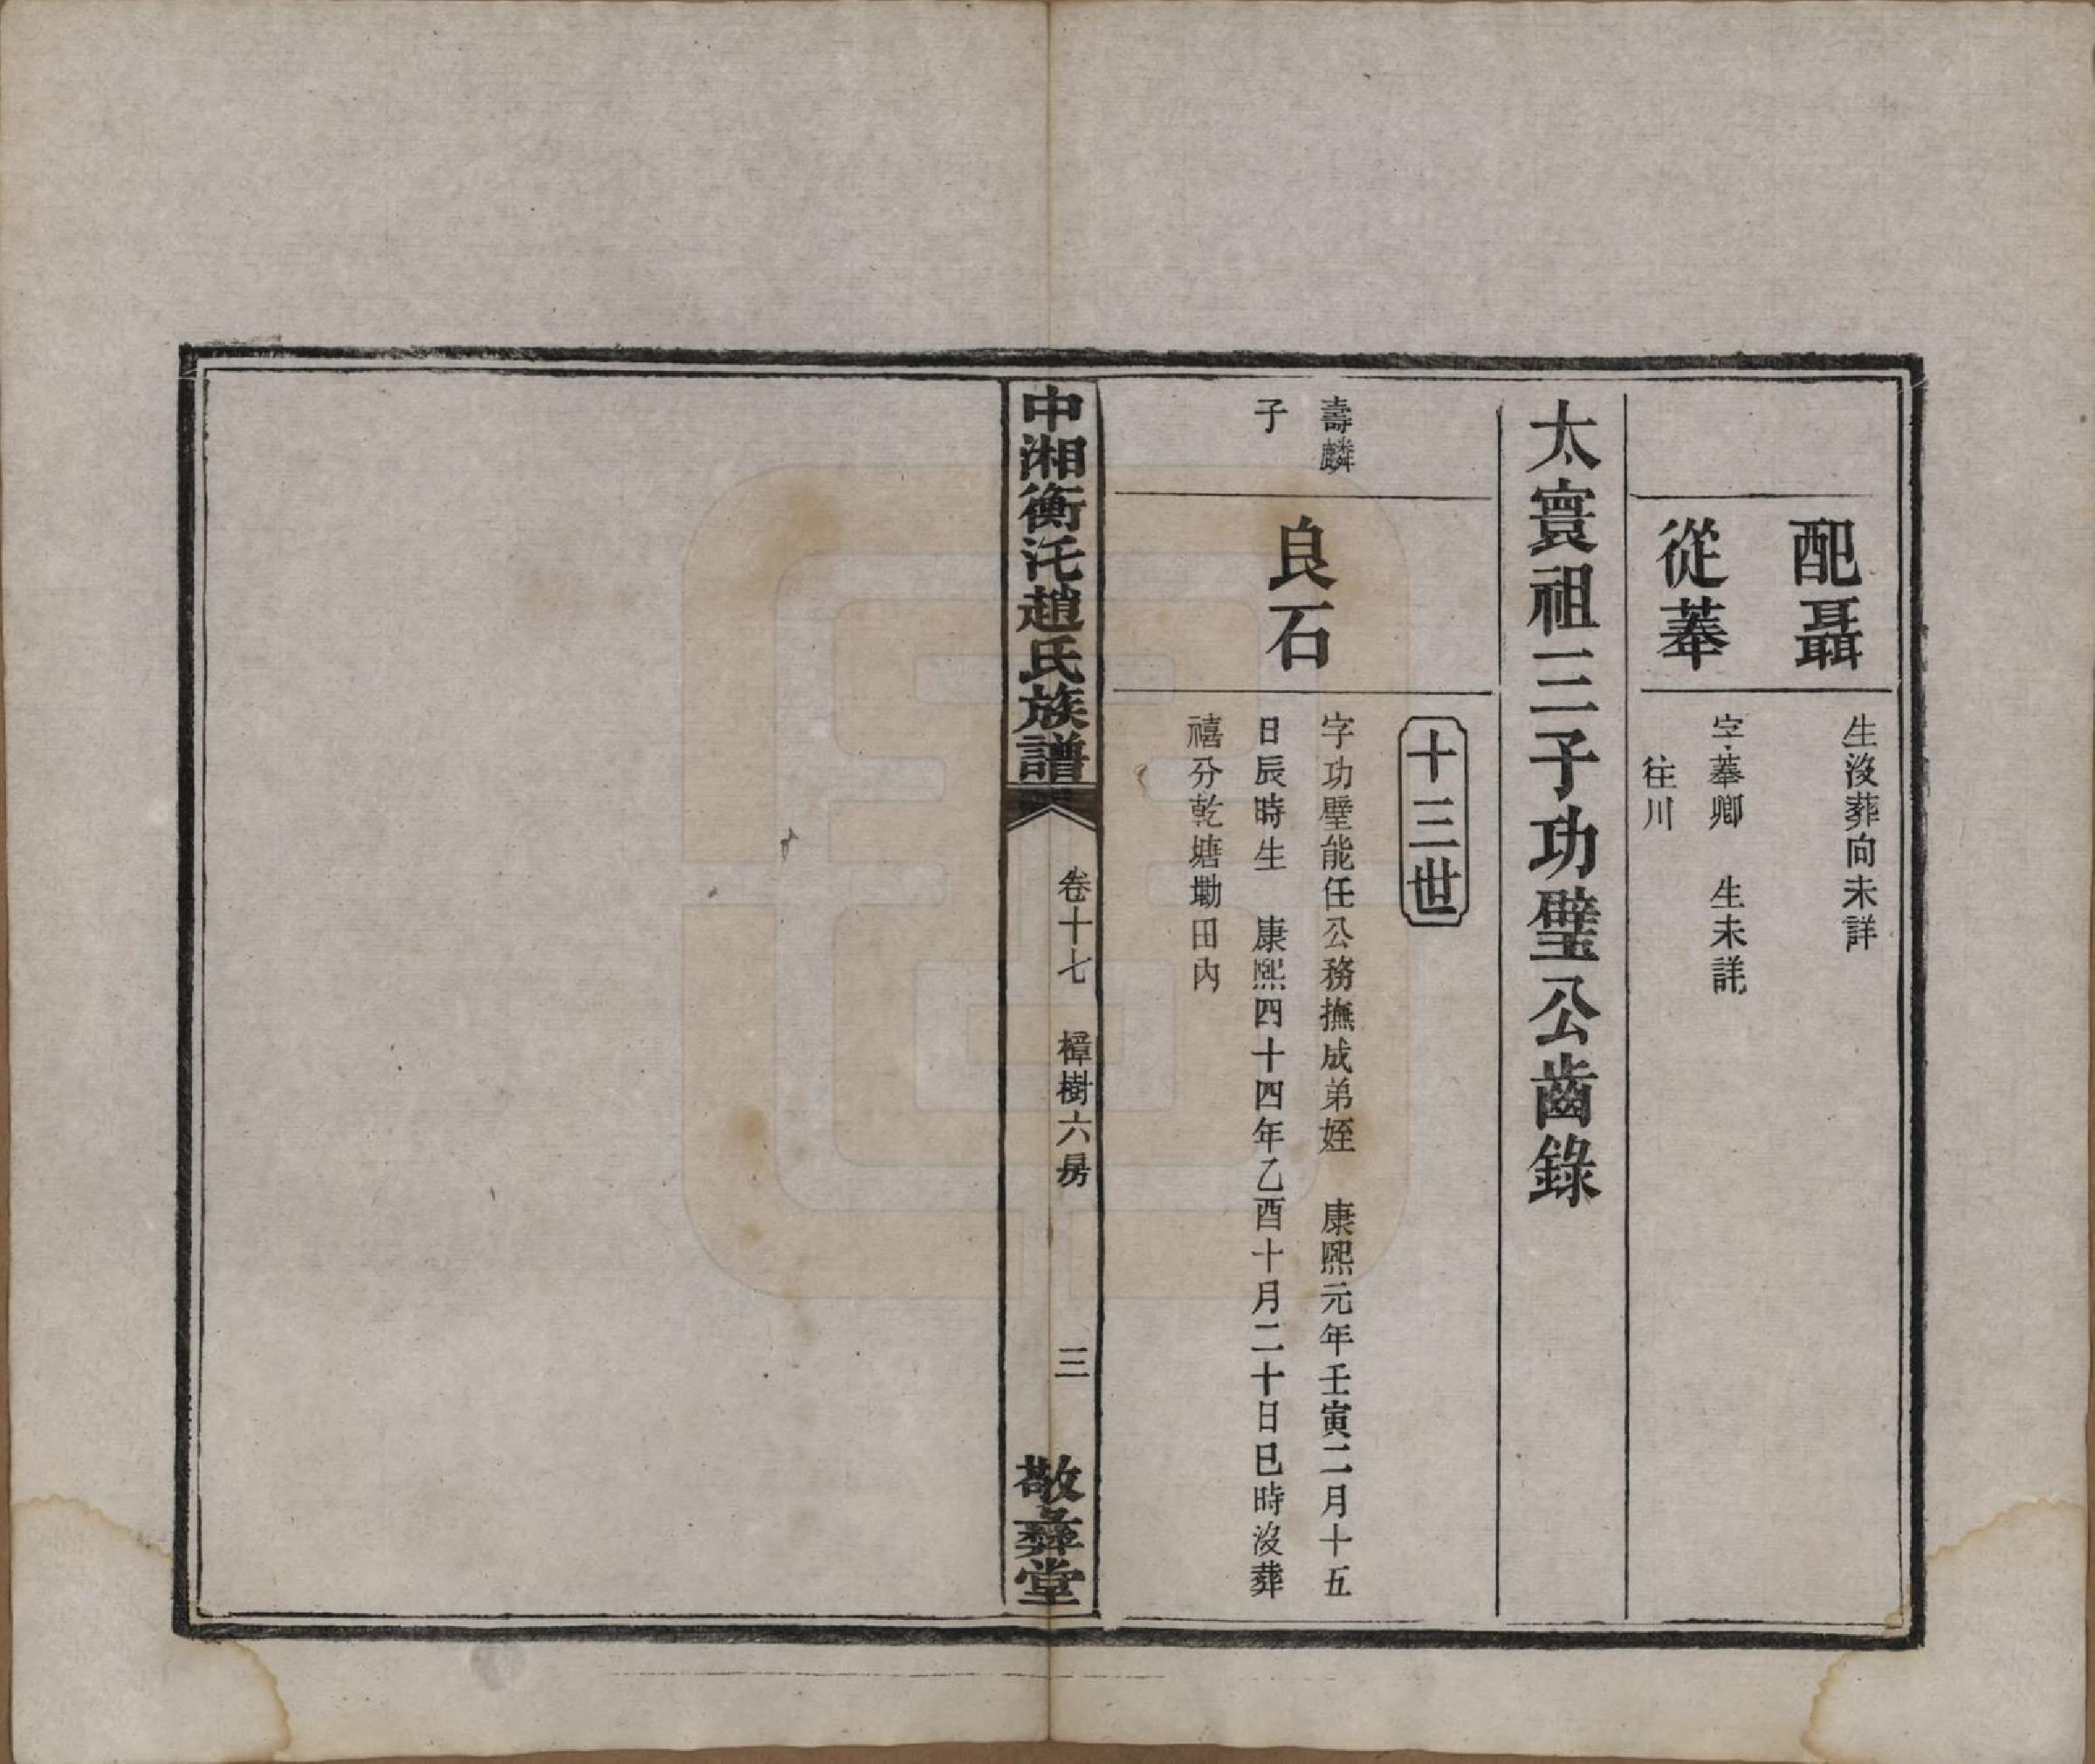 配聶
生沒葬向未詳
從蓽
字蓽卿　生未詳
往川
太寰祖三子功璧公齒錄
十三世
壽麟
子
良石
字功璧能任公務撫成弟姪　康熙元年壬寅二月十五
日辰時生　康熙四十四年乙酉十月二十日巳時沒葬
禧分乾塘墈田內
中湘衡汑趙氏族譜
卷十七　樟樹六房
三
敬彝堂